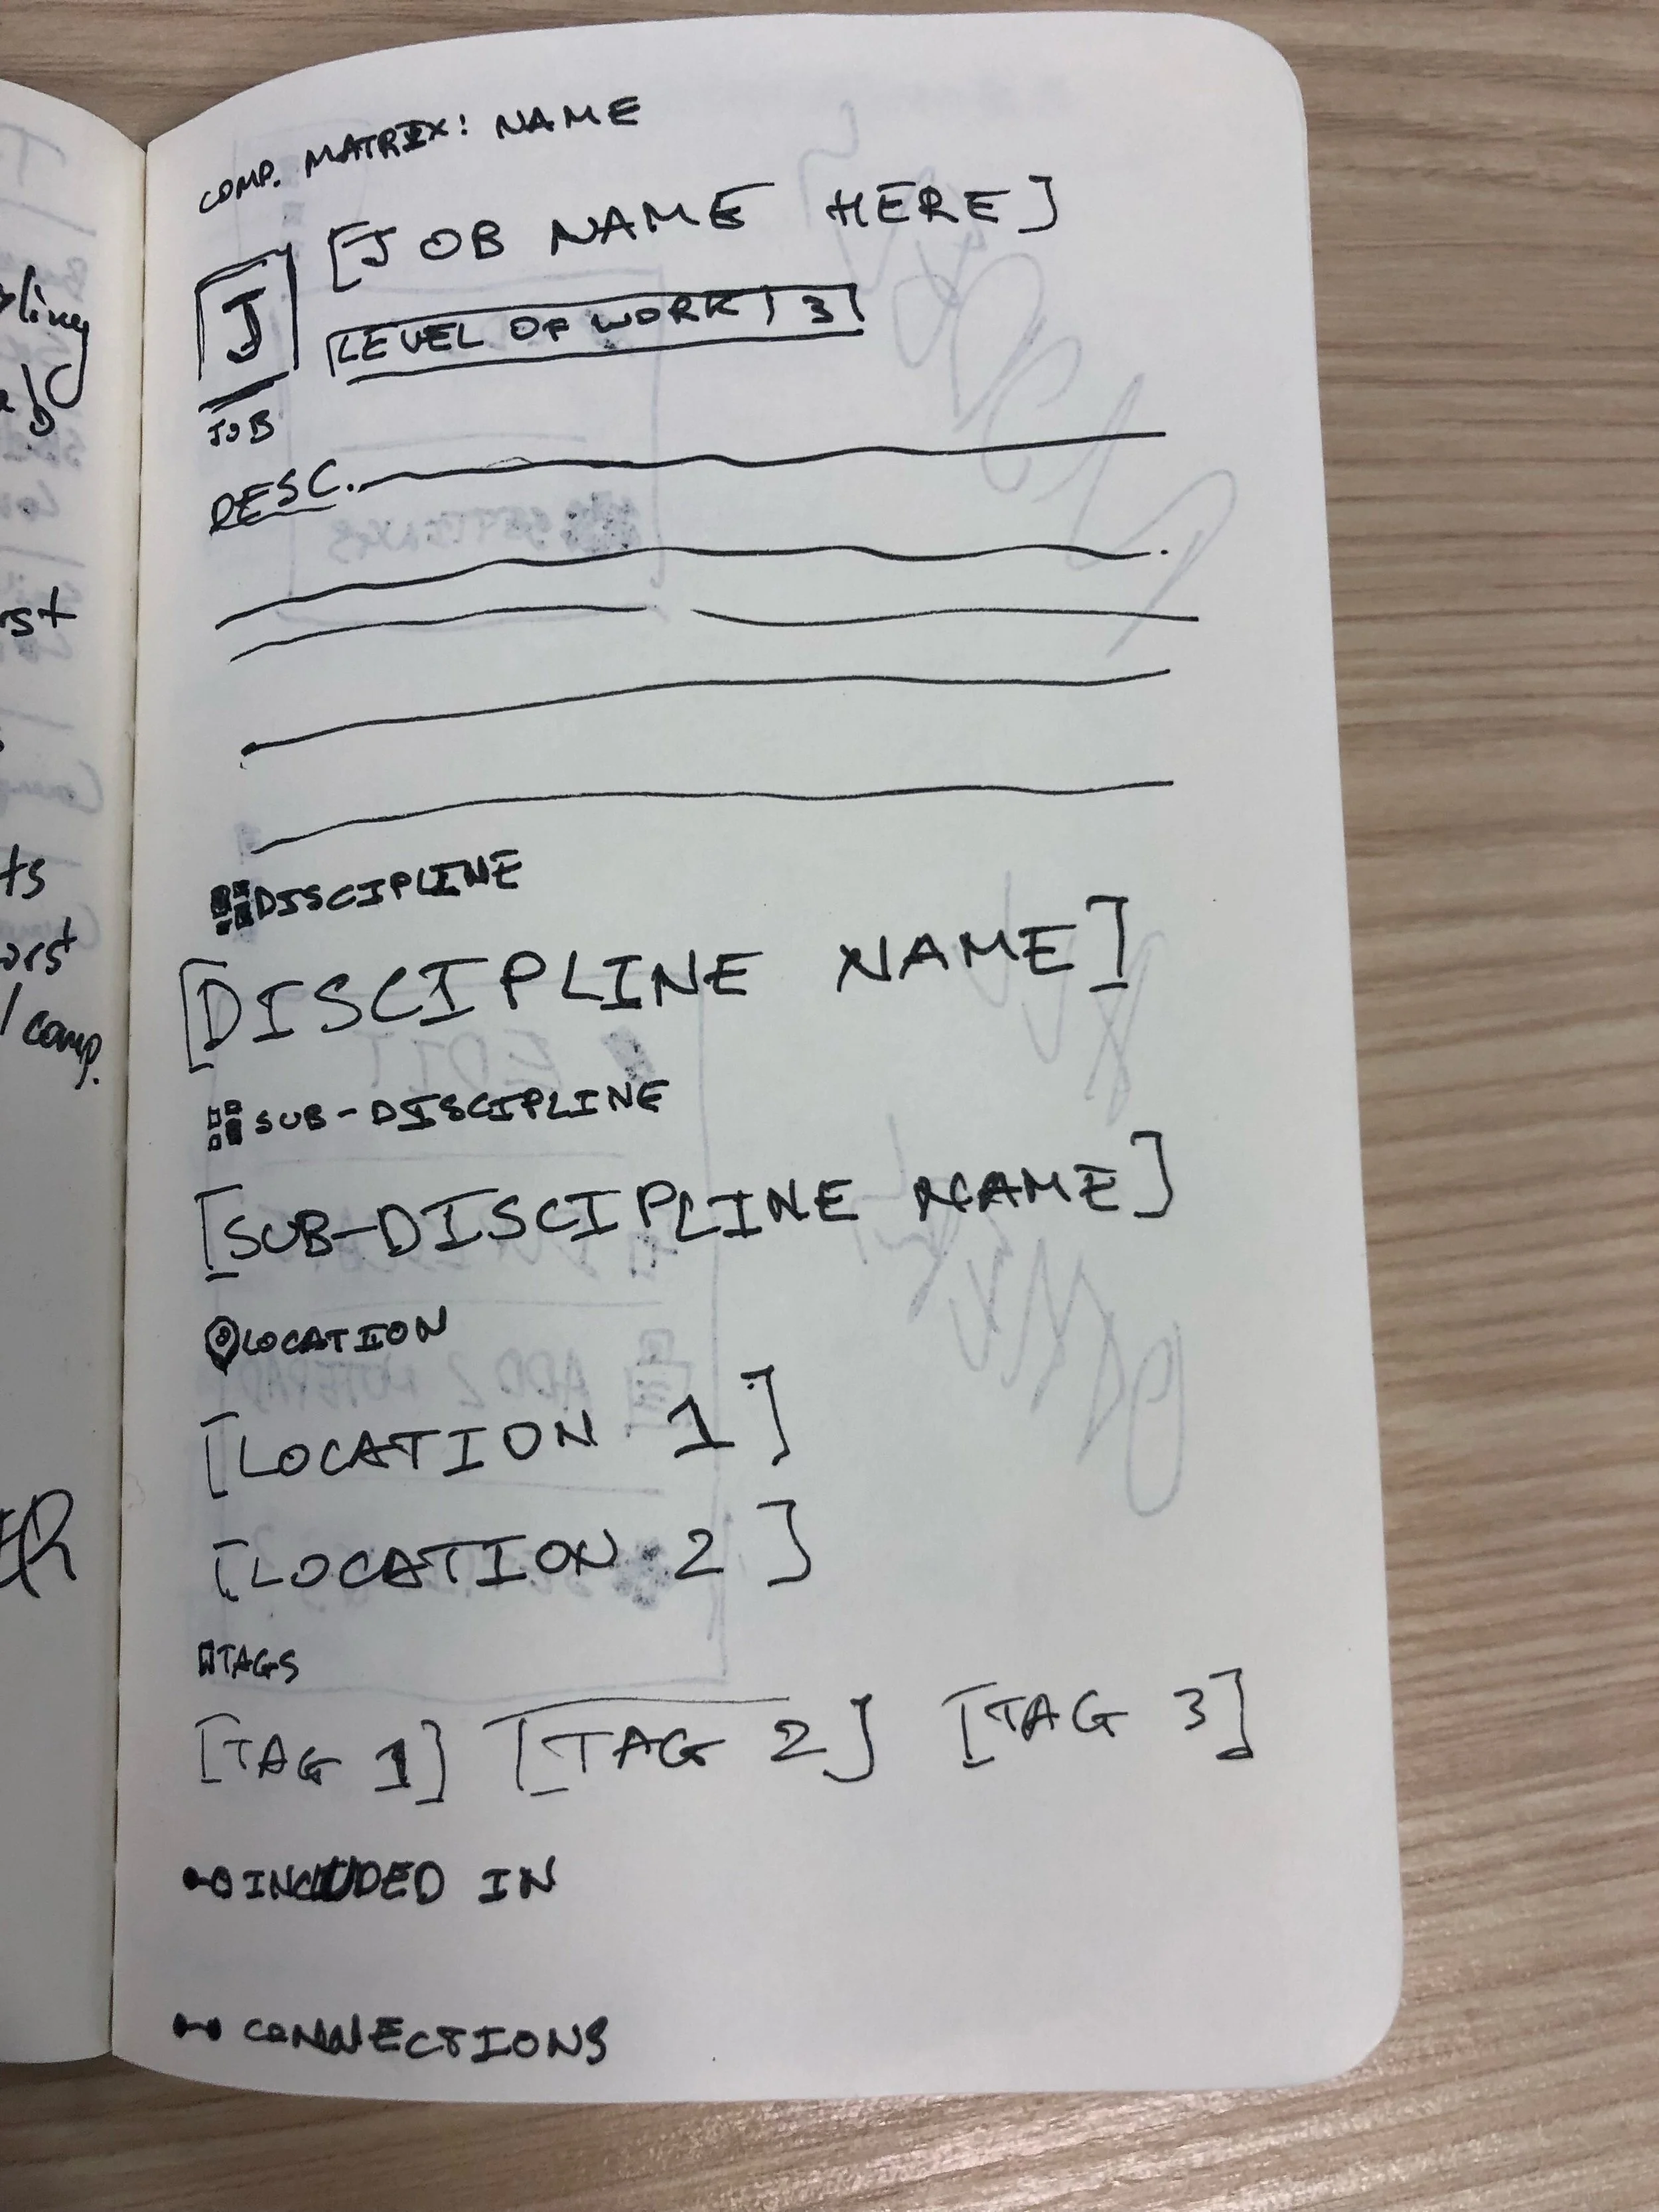 COMP. MATRIX: NAME
[JOB NAME HERE]
J
LEVEL OF WORK | 3
JOB
DESC.
DISCIPLINE
[DISCIPLINE NAME]
SUB-DISCIPLINE
[SUB-DISCIPLINE NAME]
LOCATION
[LOCATION 1]
[LOCATION 2]
TAGS
[TAG 1] [TAG 2] [TAG 3]
INCLUDED IN
CONNECTIONS
comp.